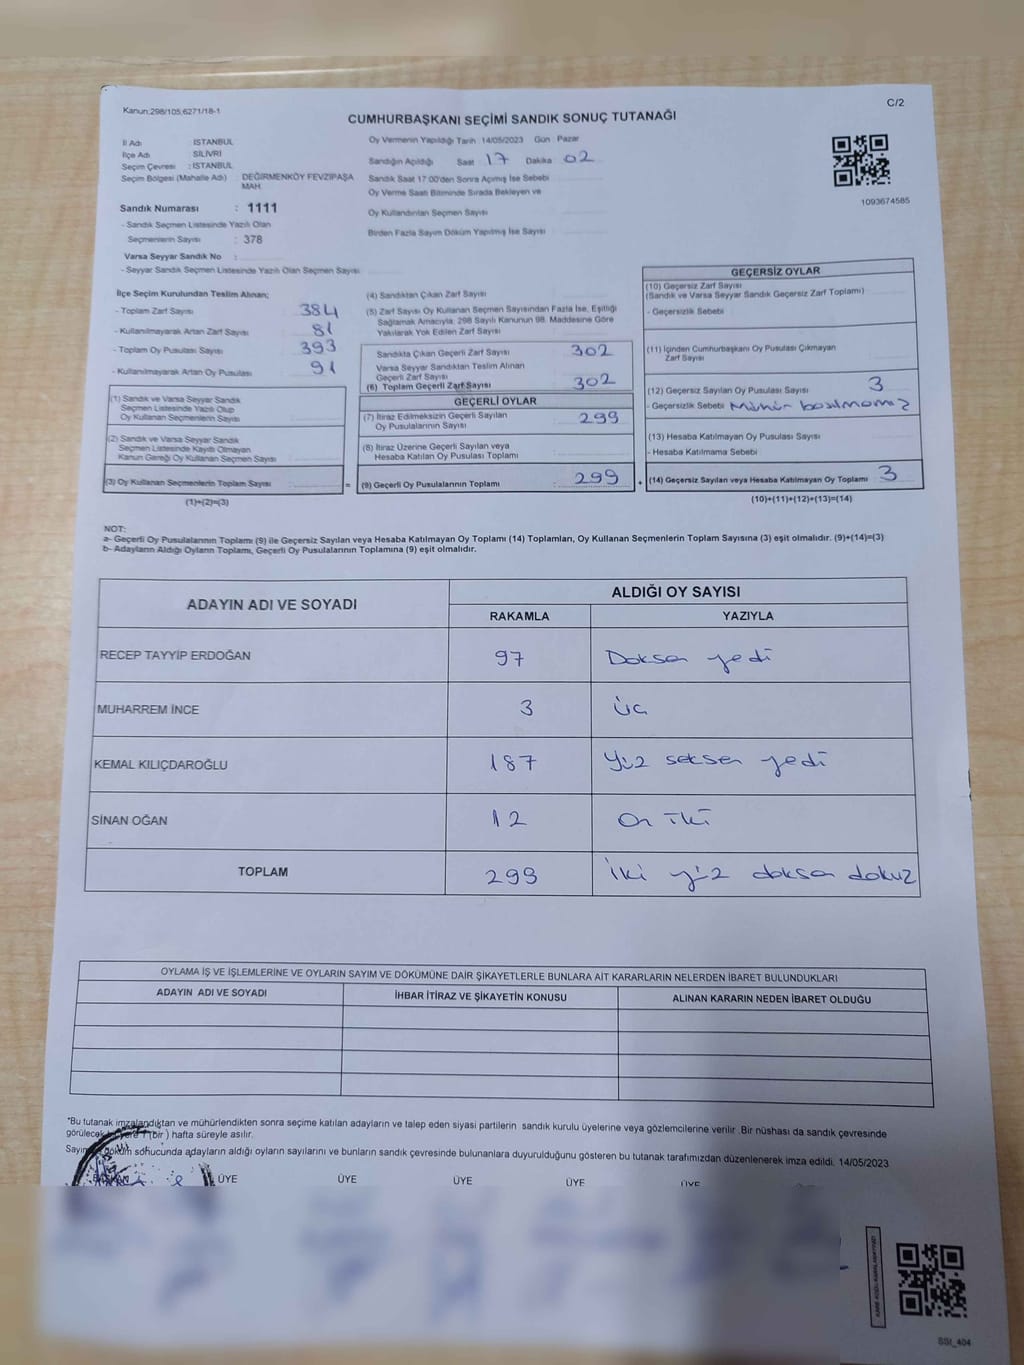 Kanun:298/105;6271/18-1
C/2
CUMHURBAŞKANI SEÇİMİ SANDIK SONUÇ TUTANAĞI
İl Adı İSTANBUL
İlçe Adı SİLİVRİ
Seçim Çevresi : İSTANBUL
Seçim Bölgesi (Mahalle Adı) : DEĞİRMENKÖY FEVZİPAŞA MAH.
Sandık Numarası : 1111
- Sandık Seçmen Listesinde Yazılı Olan
Seçmenlerin Sayısı : 378
Varsa Seyyar Sandık No :
- Seyyar Sandık Seçmen Listesinde Yazılı Olan Seçmen Sayısı
Oy Vermenin Yapıldığı Tarih 14/05/2023 Gün : Pazar
Sandığın Açıldığı Saat 17 Dakika 02
Sandık Saat 17.00'den Sonra Açımış İse Sebebi
Oy Verme Saati Bitiminde Sırada Bekleyen ve
Oy Kullandırılan Seçmen Sayısı
Birden Fazla Sayım Döküm Yapılmış İse Sayısı
1093674585
İlçe Seçim Kurulundan Teslim Alınan;
- Toplam Zarf Sayısı 384
- Kullanılmayarak Artan Zarf Sayısı 81
- Toplam Oy Pusulası Sayısı 393
- Kullanılmayarak Artan Oy Pusulası 91
(1) Sandık ve Varsa Seyyar Sandık
Seçmen Listesinde Yazılı Olup
Oy Kullanan Seçmenlerin Sayısı
(2) Sandık ve Varsa Seyyar Sandık
Seçmen Listesinde Kayıtlı Olmayan
Kanun Gereği Oy Kullanan Seçmen Sayısı
(3) Oy Kullanan Seçmenlerin Toplam Sayısı =
(1)+(2)=(3)
(4) Sandıktan Çıkan Zarf Sayısı
(5) Zarf Sayısı Oy Kullanan Seçmen Sayısından Fazla İse, Eşitliği
Sağlamak Amacıyla; 298 Sayılı Kanunun 98. Maddesine Göre
Yakılarak Yok Edilen Zarf Sayısı
Sandıkta Çıkan Geçerli Zarf Sayısı 302
Varsa Seyyar Sandıktan Teslim Alınan
Geçerli Zarf Sayısı
(6) Toplam Geçerli Zarf Sayısı 302
GEÇERLİ OYLAR
(7) İtiraz Edilmeksizin Geçerli Sayılan
Oy Pusulalarının Sayısı 299
(8) İtiraz Üzerine Geçerli Sayılan veya
Hesaba Katılan Oy Pusulası Toplamı
(9) Geçerli Oy Pusulalarının Toplamı 299 +
GEÇERSİZ OYLAR
(10) Geçersiz Zarf Sayısı
(Sandık ve Varsa Seyyar Sandık Geçersiz Zarf Toplamı)
- Geçersizlik Sebebi
(11) İçinden Cumhurbaşkanı Oy Pusulası Çıkmayan
Zarf Sayısı
(12) Geçersiz Sayılan Oy Pusulası Sayısı 3
- Geçersizlik Sebebi Mühür basılmamış
(13) Hesaba Katılmayan Oy Pusulası Sayısı
- Hesaba Katılmama Sebebi
(14) Geçersiz Sayılan veya Hesaba Katılmayan Oy Toplamı 3
(10)+(11)+(12)+(13)=(14)
NOT:
a- Geçerli Oy Pusulalarının Toplamı (9) ile Geçersiz Sayılan veya Hesaba Katılmayan Oy Toplamı (14) Toplamları, Oy Kullanan Seçmenlerin Toplam Sayısına (3) eşit olmalıdır. (9)+(14)=(3)
b- Adayların Aldığı Oyların Toplamı, Geçerli Oy Pusulalarının Toplamına (9) eşit olmalıdır.
ADAYIN ADI VE SOYADI
ALDIĞI OY SAYISI
RAKAMLA YAZIYLA
RECEP TAYYİP ERDOĞAN 97 Doksan yedi
MUHARREM İNCE 3 Üç
KEMAL KILIÇDAROĞLU 187 Yüz seksen yedi
SİNAN OĞAN 12 On iki
TOPLAM 299 İki yüz doksan dokuz
OYLAMA İŞ VE İŞLEMLERİNE VE OYLARIN SAYIM VE DÖKÜMÜNE DAİR ŞİKAYETLERLE BUNLARA AİT KARARLARIN NELERDEN İBARET BULUNDUKLARI
ADAYIN ADI VE SOYADI İHBAR İTİRAZ VE ŞİKAYETİN KONUSU ALINAN KARARIN NEDEN İBARET OLDUĞU
*Bu tutanak imzalandıktan ve mühürlendikten sonra seçime katılan adayların ve talep eden siyasi partilerin sandık kurulu üyelerine veya gözlemcilerine verilir .Bir nüshası da sandık çevresinde
görülecek bir yere 1 (bir ) hafta süreyle asılır.
Sayım döküm sonucunda adayların aldığı oyların sayılarını ve bunların sandık çevresinde bulunanlara duyurulduğunu gösteren bu tutanak tarafımızdan düzenlenerek imza edildi. 14/05/2023
BAŞKAN ÜYE ÜYE ÜYE ÜYE ÜYE
SSt_404